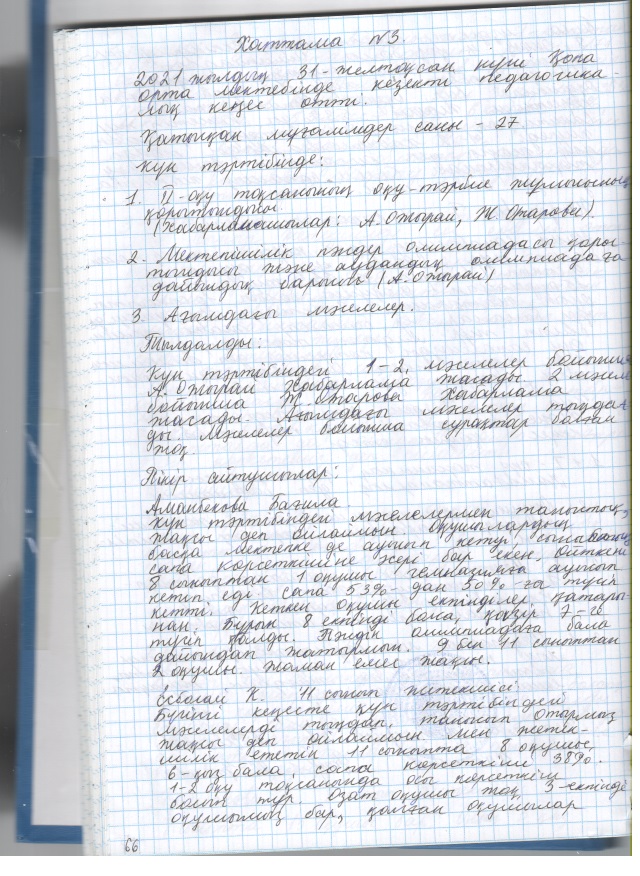 Хаттама №3.
2021 жылдың 31-желтоқсан күні Қопа
орта мектебінде кезекті педагогика-
лық кеңес өтті.
Қатысқан мұғалімдер саны - 27
Күн тәртібінде:
1. II-оқу тоқсанының оқу-тәрбие жұмысының
қорытындысы
(Хабарланошылар: А.Ожырай, Ж.Отарова).
2. Мектепішілік пәндер олимпиадасы қоры-
тындысы және аудандық олимпиадаға
дайындық барысы (А.Ожырай)
3. Ағымдағы мәселелер.
Тыңдалды:
Күн тәртібіндегі 1-2, мәселелер бойынша
А.Ожырай хабарлама жасады 2 мәселе
бойынша Ж.Отарова хабарлама
жасады. Ағымдағы мәселелер тыңдал-
ды. Мәселелер бойынша сұрақтар болған
жоқ.
Пікір айтушылар:
Аманбекова Бағила
Күн тәртібіндегі мәселелермен таныстық,
жақсы деп ойлаймын оқушылардың
басқа мектепке де ауысып кетуі сыныбының
сапа көрсеткішіне әсері бар екен. Өйткені
8 сыныптан 1 оқушы гимназияға ауысып
кетіп еді сапа 53%-дан 50%-ға түсіп
кетті. Кеткен оқушы екпінділер қатары-
нан. Бұрын 8 екпінді болса, қазір 7-ге
түсіп қалды. Пәндік олимпиадаға бала
дайындап жатырмын. 9 бен 11 сыныптан
2 оқушы. Жаман емес жақсы.
Есболай К. 11 сынып жетекшісі
Бүгінгі кеңесте күн тәртібіндегі
мәселелерді тыңдап, танысып отырмыз
жақсы деп ойлаймын мен жетек-
шілік ететін 11 сыныпта 8 оқушы,
6-қыз бала, сапа көрсеткіші 38%.
1-2 оқу тоқсанында осы көрсеткіш
болып тұр. Озат оқушы жоқ 3-екпінді
оқушымыз бар, қалған оқушылар
66